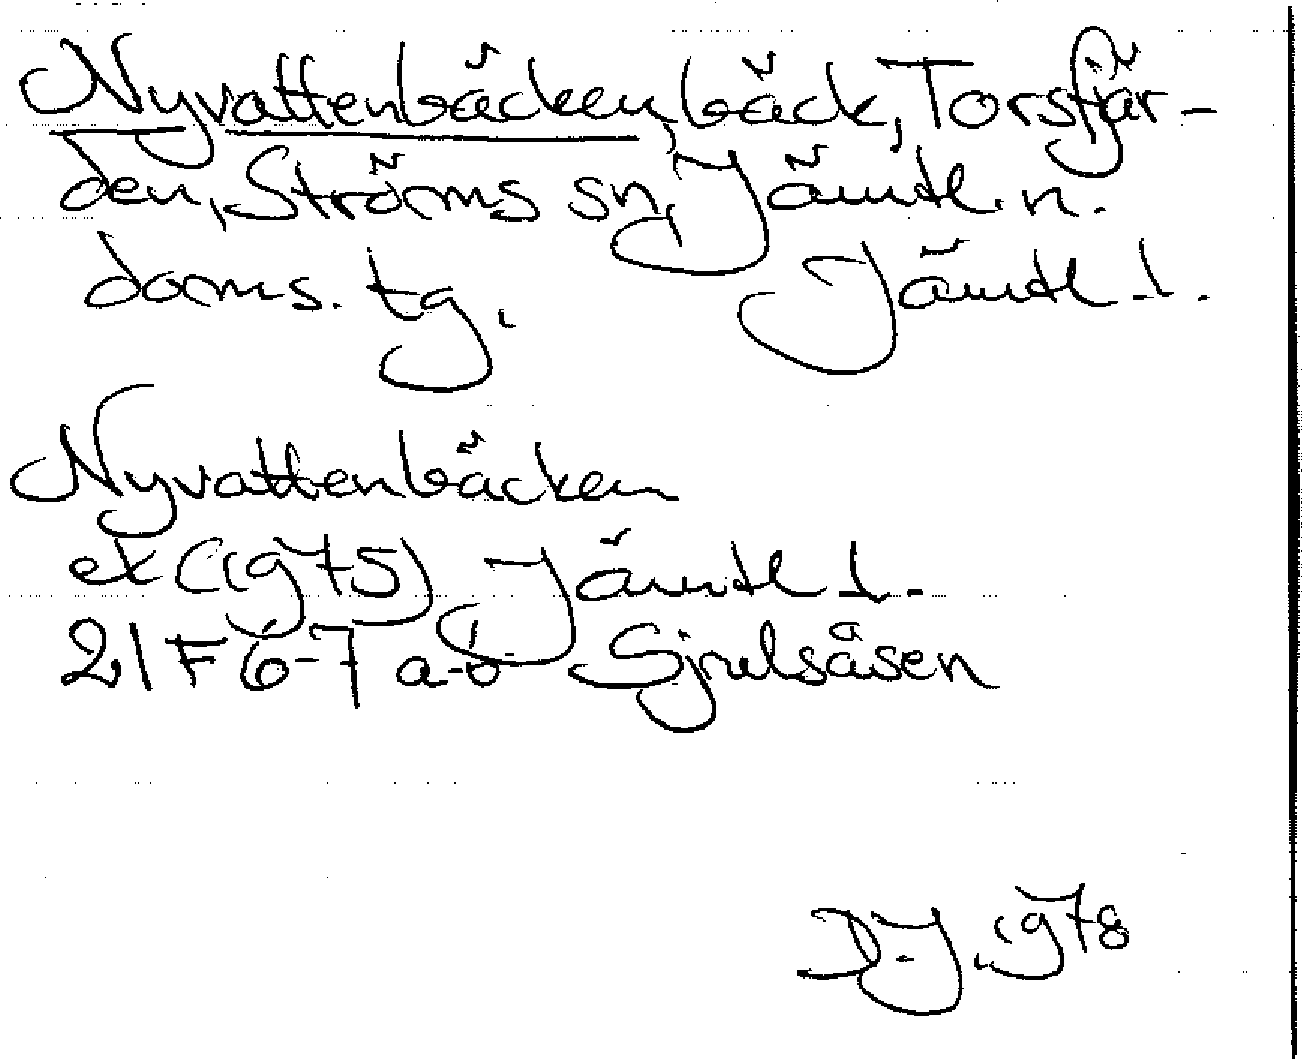 Nyvattenbäcken, bäck, Torsfjär-
den, Ströms sn, Jämtl. n.
doms. tg. Jämtl. l.
Nyvattenbäcken
ek (1975) Jämtl l.
21F 6-7 a-b Sjulsåsen
D.J. 1978